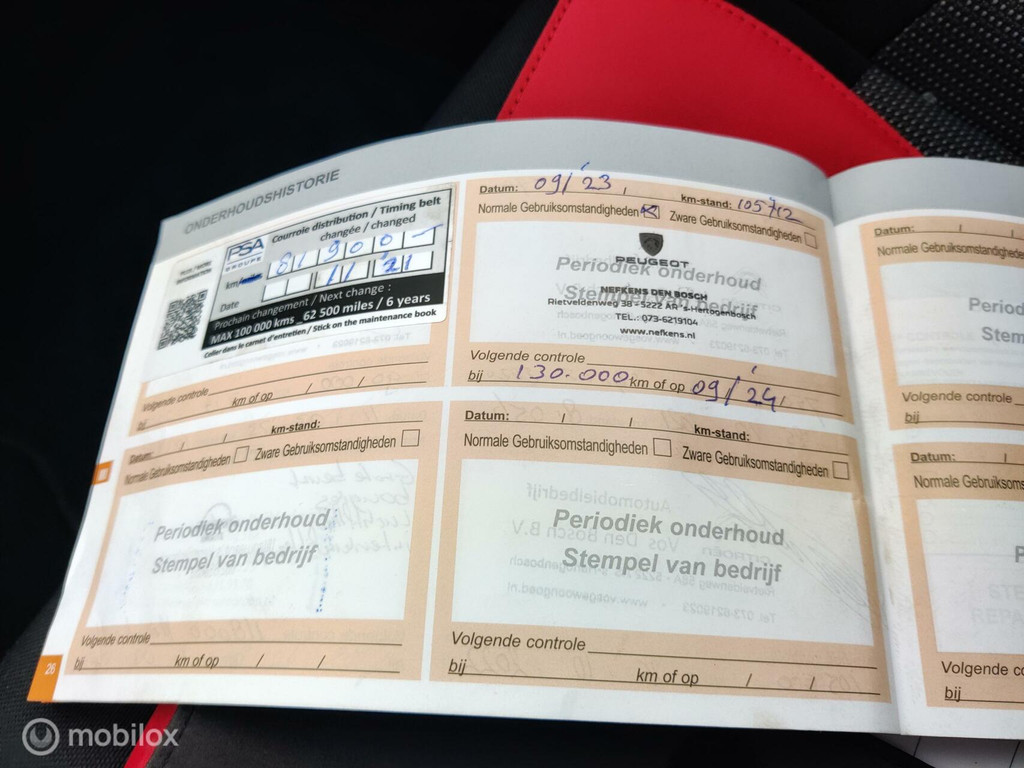 ONDERHOUDSHISTORIE
PSA
GROUPE
Courroie distribution / Timing belt
changée / changed
km/ 81900-
Date 11/21
Prochain changement / Next change :
MAX 100 000 kms 62 500 miles / 6 years
Coller dans le carnet d'entretien / Stick on the maintenance book
Volgende controle
bij km of op / /
Datum: 09/'23 km-stand: 105712
Normale Gebruiksomstandigheden Zware Gebruiksomstandigheden
PEUGEOT
Periodiek onderhoud
Stempel van bedrijf
NEFKENS DEN BOSCH
Rietveldenweg 38 - 5222 AR 's-Hertogenbosch
TEL.: 073-6219104
www.nefkens.nl
Volgende controle
bij 130.000 km of op 09/'24
Datum: / /
Normale Gebruiksomstandighede
Period
Ste
Volgende controle
bij
Datum: / / km-stand:
Normale Gebruiksomstandigheden Zware Gebruiksomstandigheden
Periodiek onderhoud
Stempel van bedrijf
Volgende controle
bij km of op / /
Datum: / / km-stand:
Normale Gebruiksomstandigheden Zware Gebruiksomstandigheden
Periodiek onderhoud
Stempel van bedrijf
Volgende controle
bij km of op / /
Datum: /
Normale Gebruiksom
P
Volgende co
bij
26
mobilox